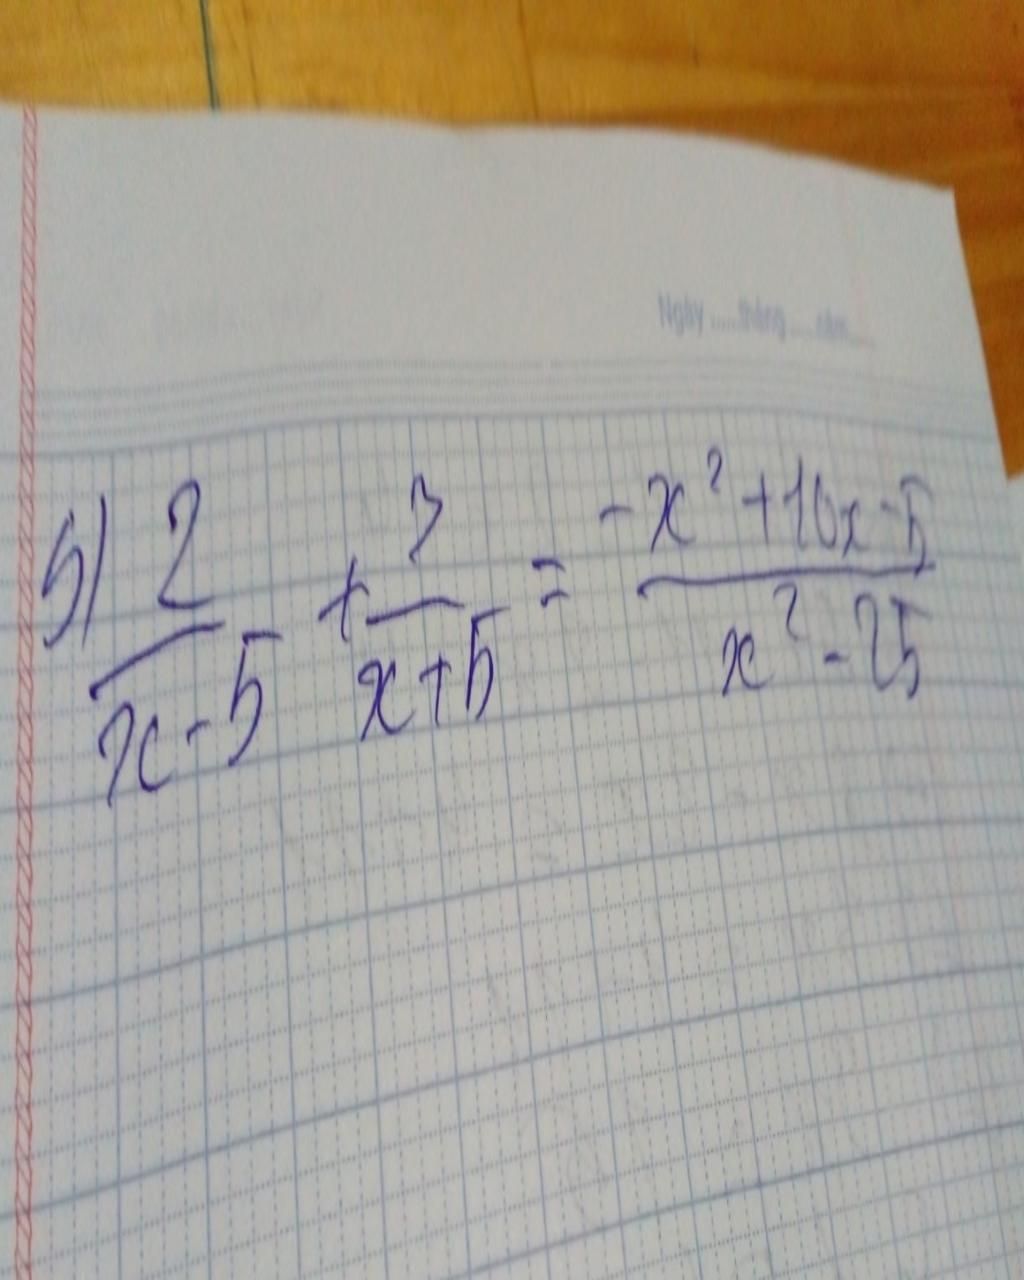 Ngày ..... tháng ..... năm .....
5) 2/(x-5) + 3/(x+5) = (-x² + 10x - 5)/(x² - 25)